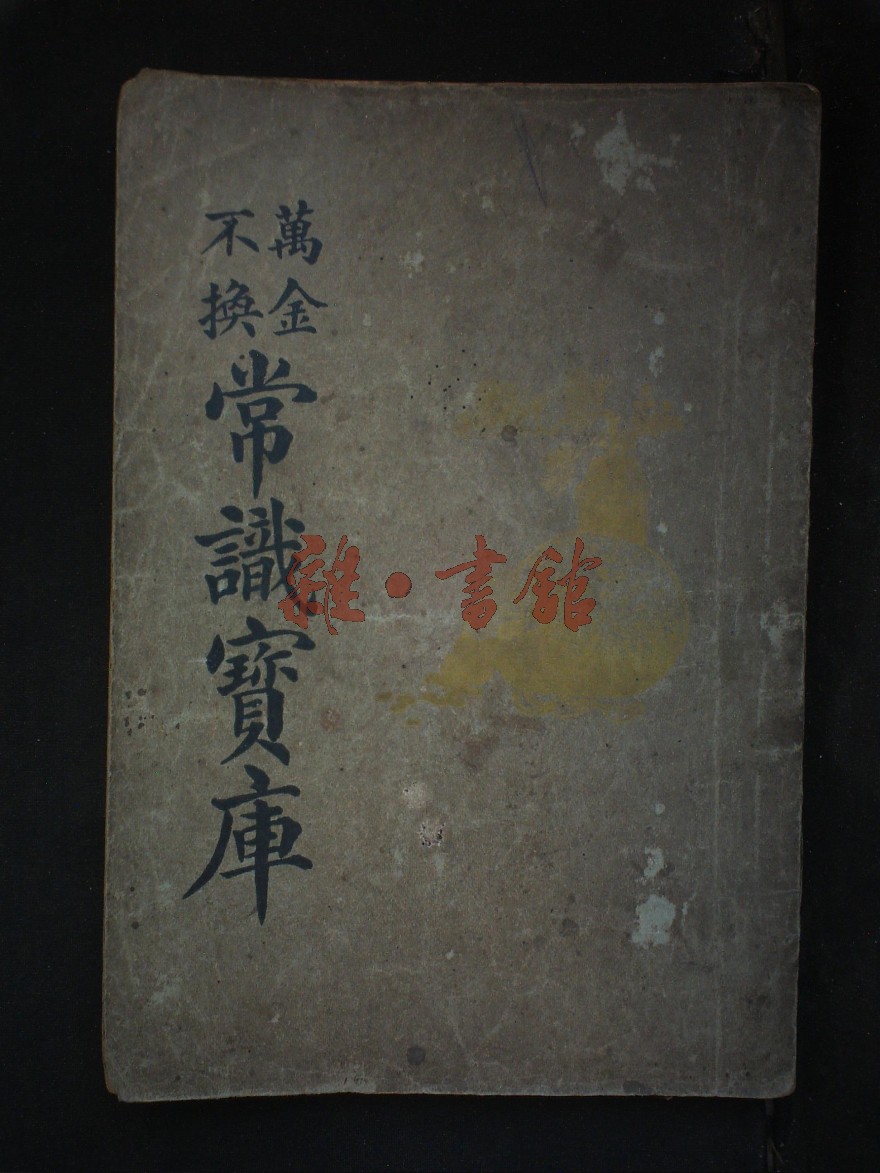 萬金
不換
常識寶庫
雜·書館